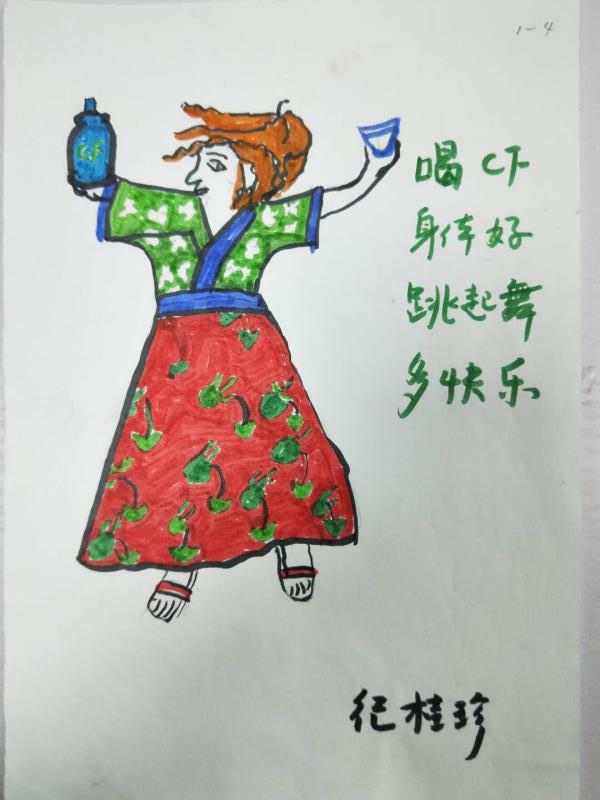 1-4
CF
喝CF
身体好
跳起舞
多快乐
纪桂珍